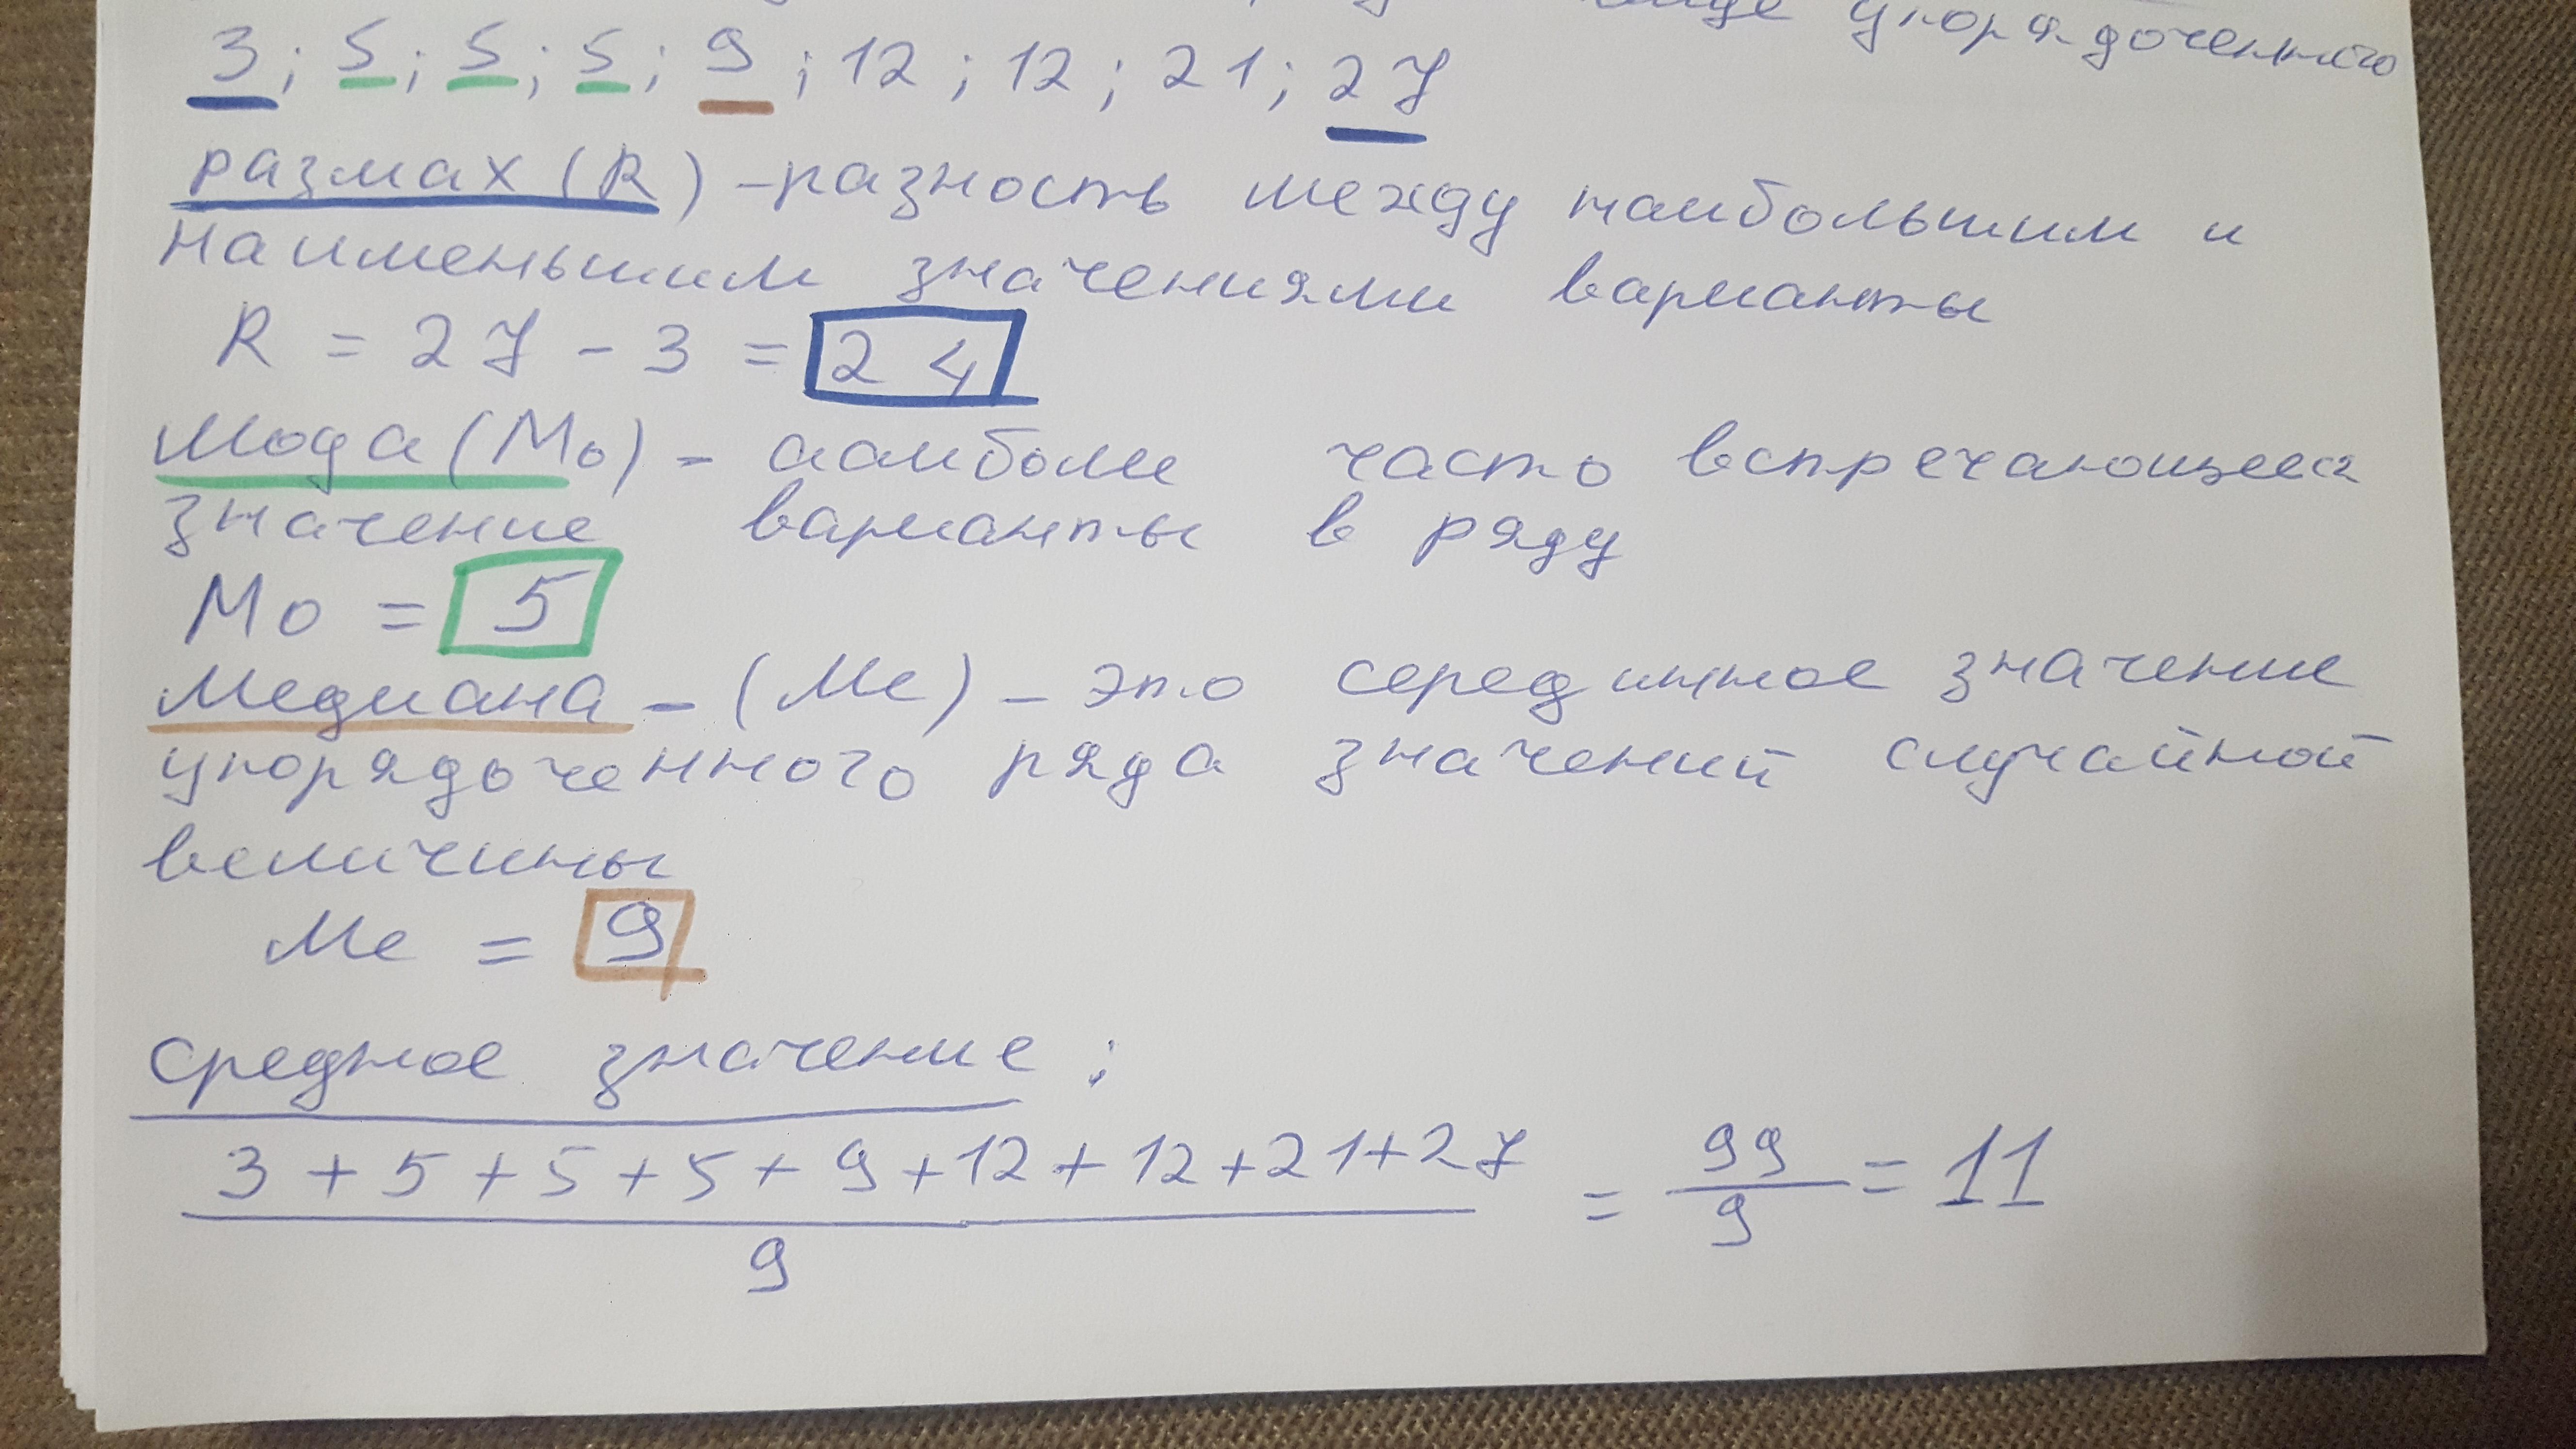 упорядоченного
3; 5; 5; 5; 9; 12; 12; 21; 27
размах (R) - разность между наибольшим и
наименьшим значениями варианты
R = 27 - 3 = 24
Мода (Mo) - наиболее часто встречающееся
значение варианты в ряду
Mo = 5
Медиана - (Me) - это серединное значение
упорядоченного ряда значений случайной
величины
Me = 9
среднее значение:
3 + 5 + 5 + 5 + 9 + 12 + 12 + 21 + 27 = 99 = 11
9 9